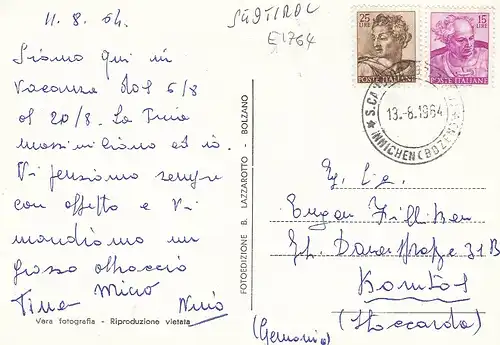 11. 8. 64.
SÜDTIROL
E1764
25 LIRE
POSTE ITALIANE
15 LIRE
POSTE ITALIANE
13.-8.1964
INNICHEN (BOZEN)
Siamo qui in
vacanza dal 6/8
al 20/8. La Tina
massimiliano ed io.
Vi pensiamo sempre
con affetto e Vi
mandiamo un
grosso abbraccio
Tina Micio Nino
Vera fotografia - Riproduzione vietata
FOTOEDIZIONE B. LAZZAROTTO - BOLZANO
Eugen
31B
(Stoccarda)
(Germania)